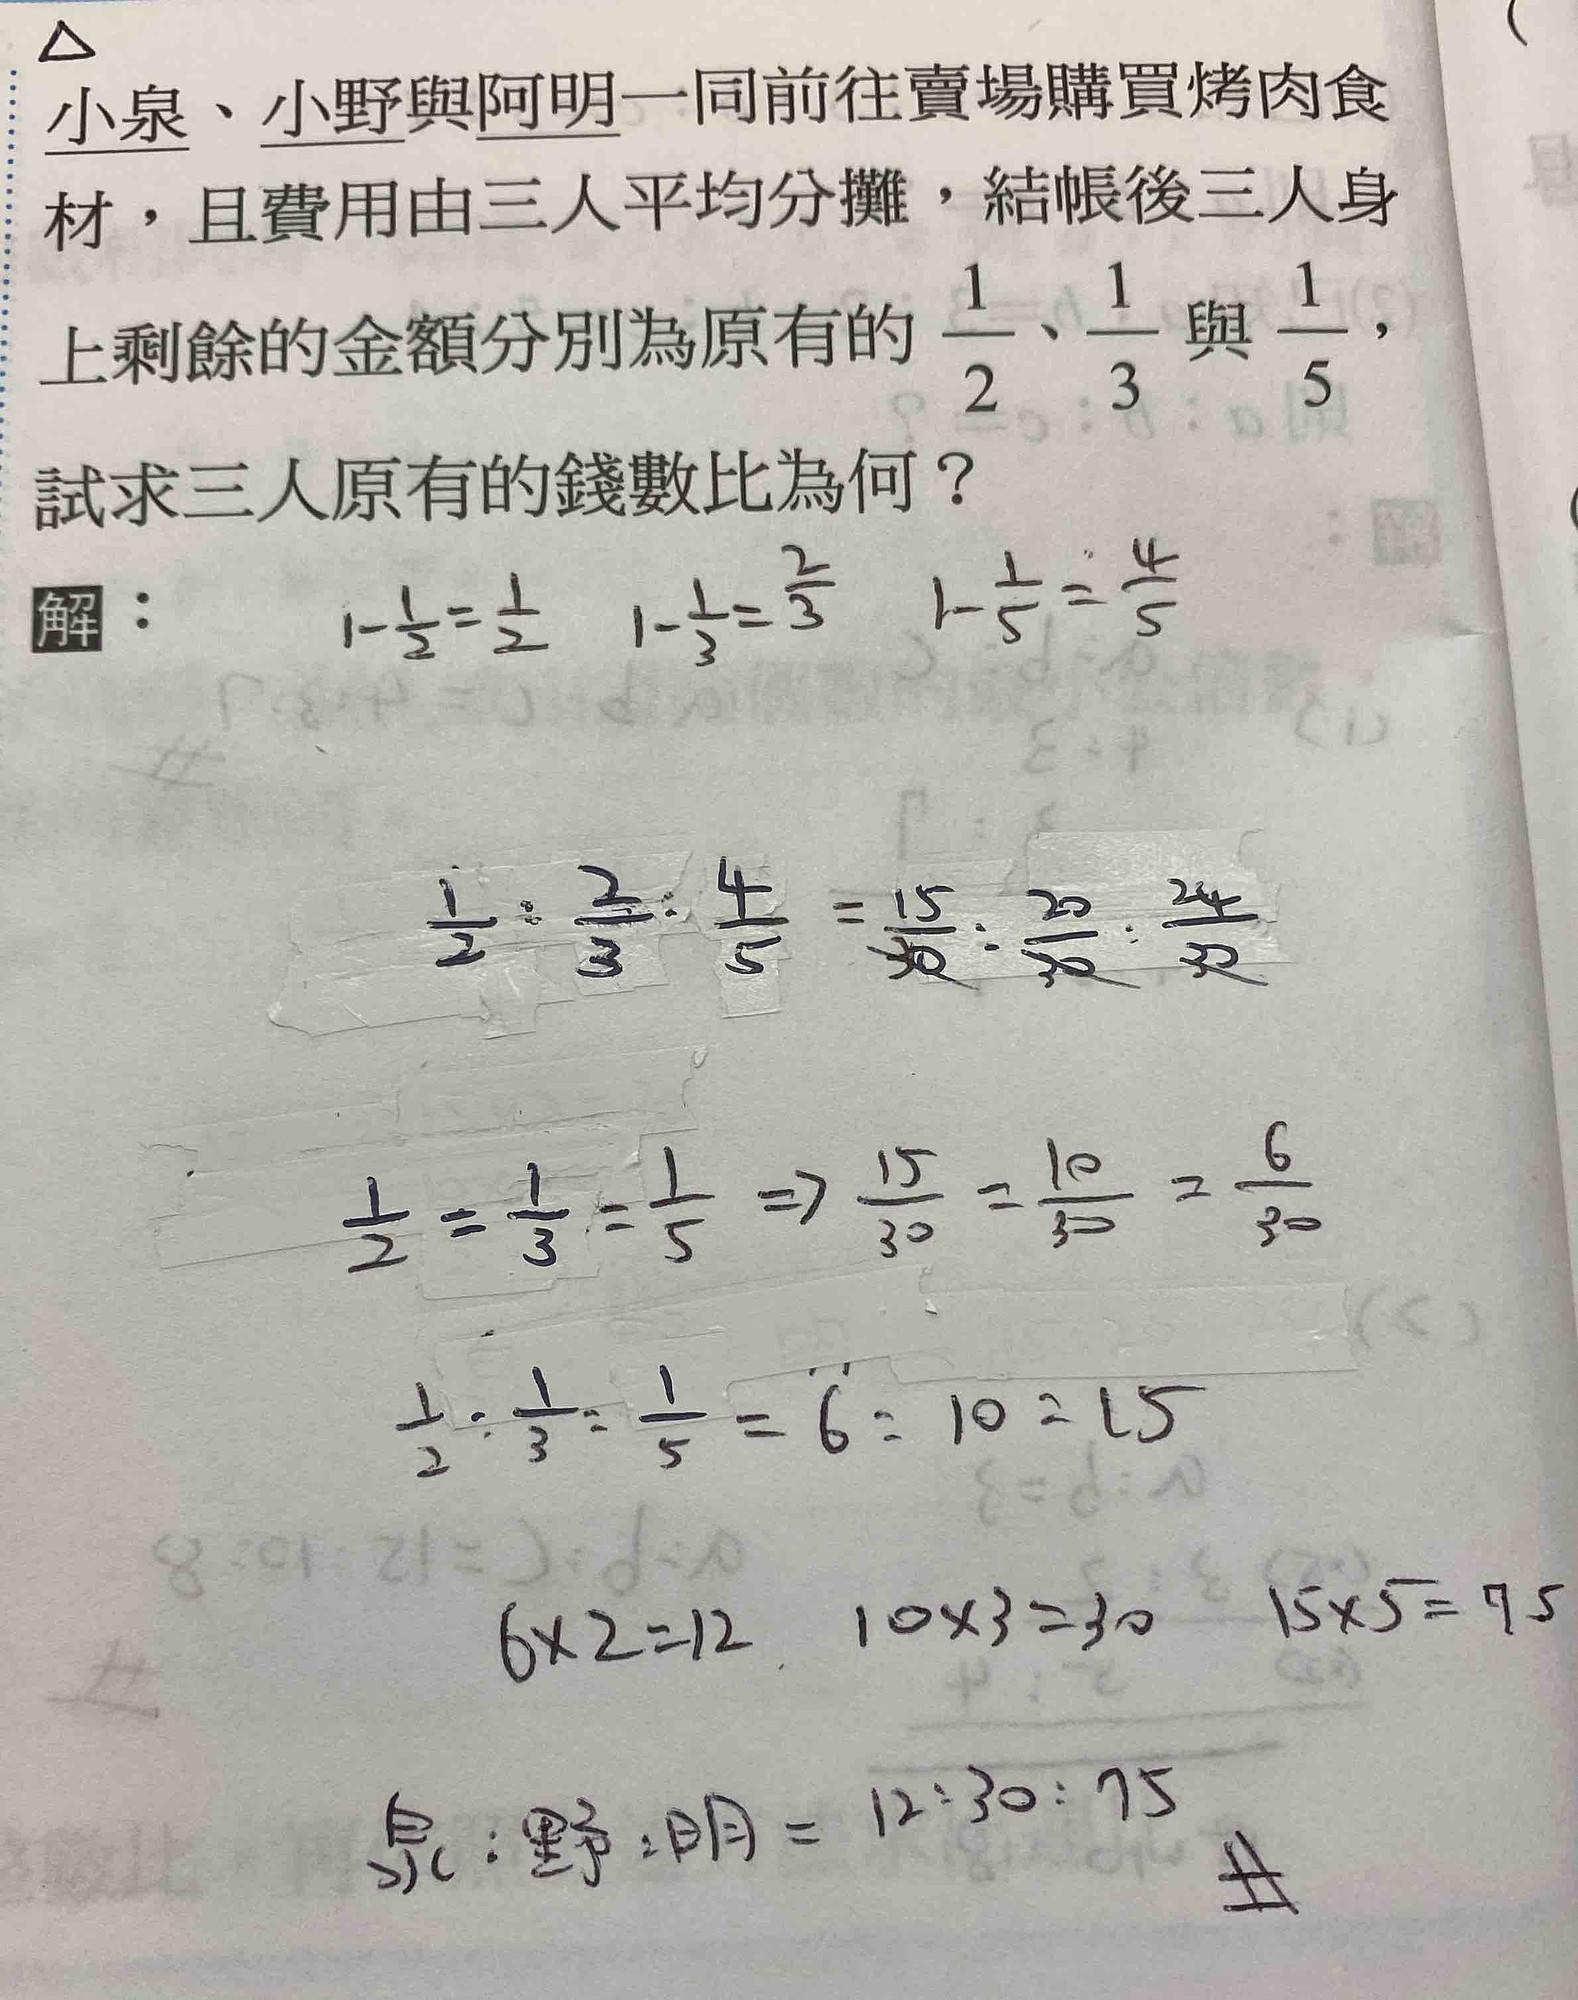 △
小泉、小野與阿明一同前往賣場購買烤肉食
材，且費用由三人平均分攤，結帳後三人身
上剩餘的金額分別為原有的 1/2、1/3 與 1/5，
試求三人原有的錢數比為何？
解： 1-1/2=1/2 1-1/3=2/3 1-1/5=4/5
1/2:2/3:4/5=15/30:20/30:24/30
1/2=1/3=1/5 => 15/30=10/30=6/30
1/2:1/3:1/5=6:10:15
6×2=12 10×3=30 15×5=75
泉:野:明=12:30:75